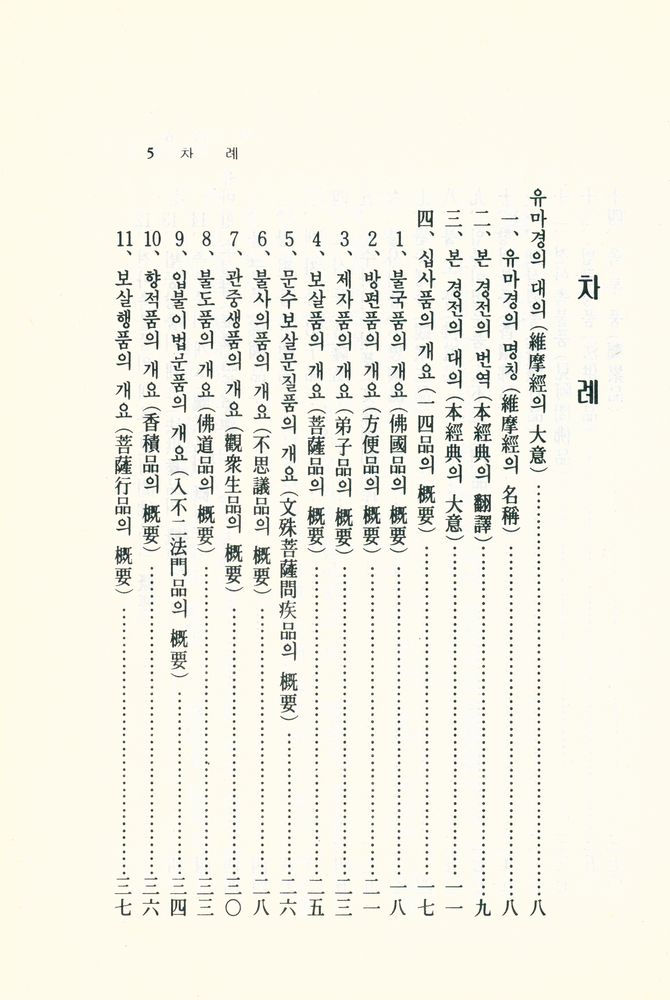 5 차 례
차 례
유마경의 대의(維摩經의 大意)……八
一、유마경의 명칭(維摩經의 名稱)……八
二、본 경전의 번역(本經典의 翻譯)……九
三、본 경전의 대의(本經典의 大意)……一一
四、십사품의 개요(一四品의 概要)……一七
1、불국품의 개요(佛國品의 概要)……一八
2、방편품의 개요(方便品의 概要)……二一
3、제자품의 개요(弟子品의 概要)……二三
4、보살품의 개요(菩薩品의 概要)……二五
5、문수보살문질품의 개요(文殊菩薩問疾品의 概要)……二六
6、불사의품의 개요(不思議品의 概要)……二八
7、관중생품의 개요(觀衆生品의 概要)……三〇
8、불도품의 개요(佛道品의 概要)……三三
9、입불이법문품의 개요(入不二法門品의 概要)……三四
10、향적품의 개요(香積品의 概要)……三六
11、보살행품의 개요(菩薩行品의 概要)……三七